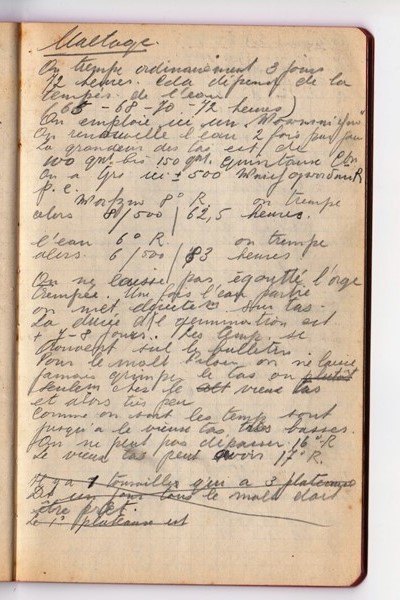 Maltage.
On trempe ordinairement 3 jours
72 heures. Cela dépend de la
temps. de l'eau
(65 - 68 - 70 - 72 heures)
On emploie ici un
On renouvelle l'eau 2 fois par jour
La grandeur des tas est de
100 qm. bis 150 qm. Quintaux
On a ici ± 500
p. c.
8° R. on trempe
alors 8/500 / 62,5 heures.
l'eau 6° R. on trempe
alors 6/500 / 83 heures
On ne laisse pas égoutté l'orge
trempée. Une fois l'eau partie
on met sur tas.
La durée de germination est
± 7-8 jours. Les temp. se
trouvent sur le bulletin
Pour le malt on ne laisse
jamais grimper le tas ou plutôt
seulem. chez le vieux tas
et alors très peu
Comme on voit les temp. sont
jusqu'à le vieux tas très basses.
On ne peut pas dépasser 16° R
Le vieux tas peut avoir 17° R.
Il y a 1 touraille qui a 3 plateaux
un jour tous le malt doit
être prêt.
Le 1° plateau est